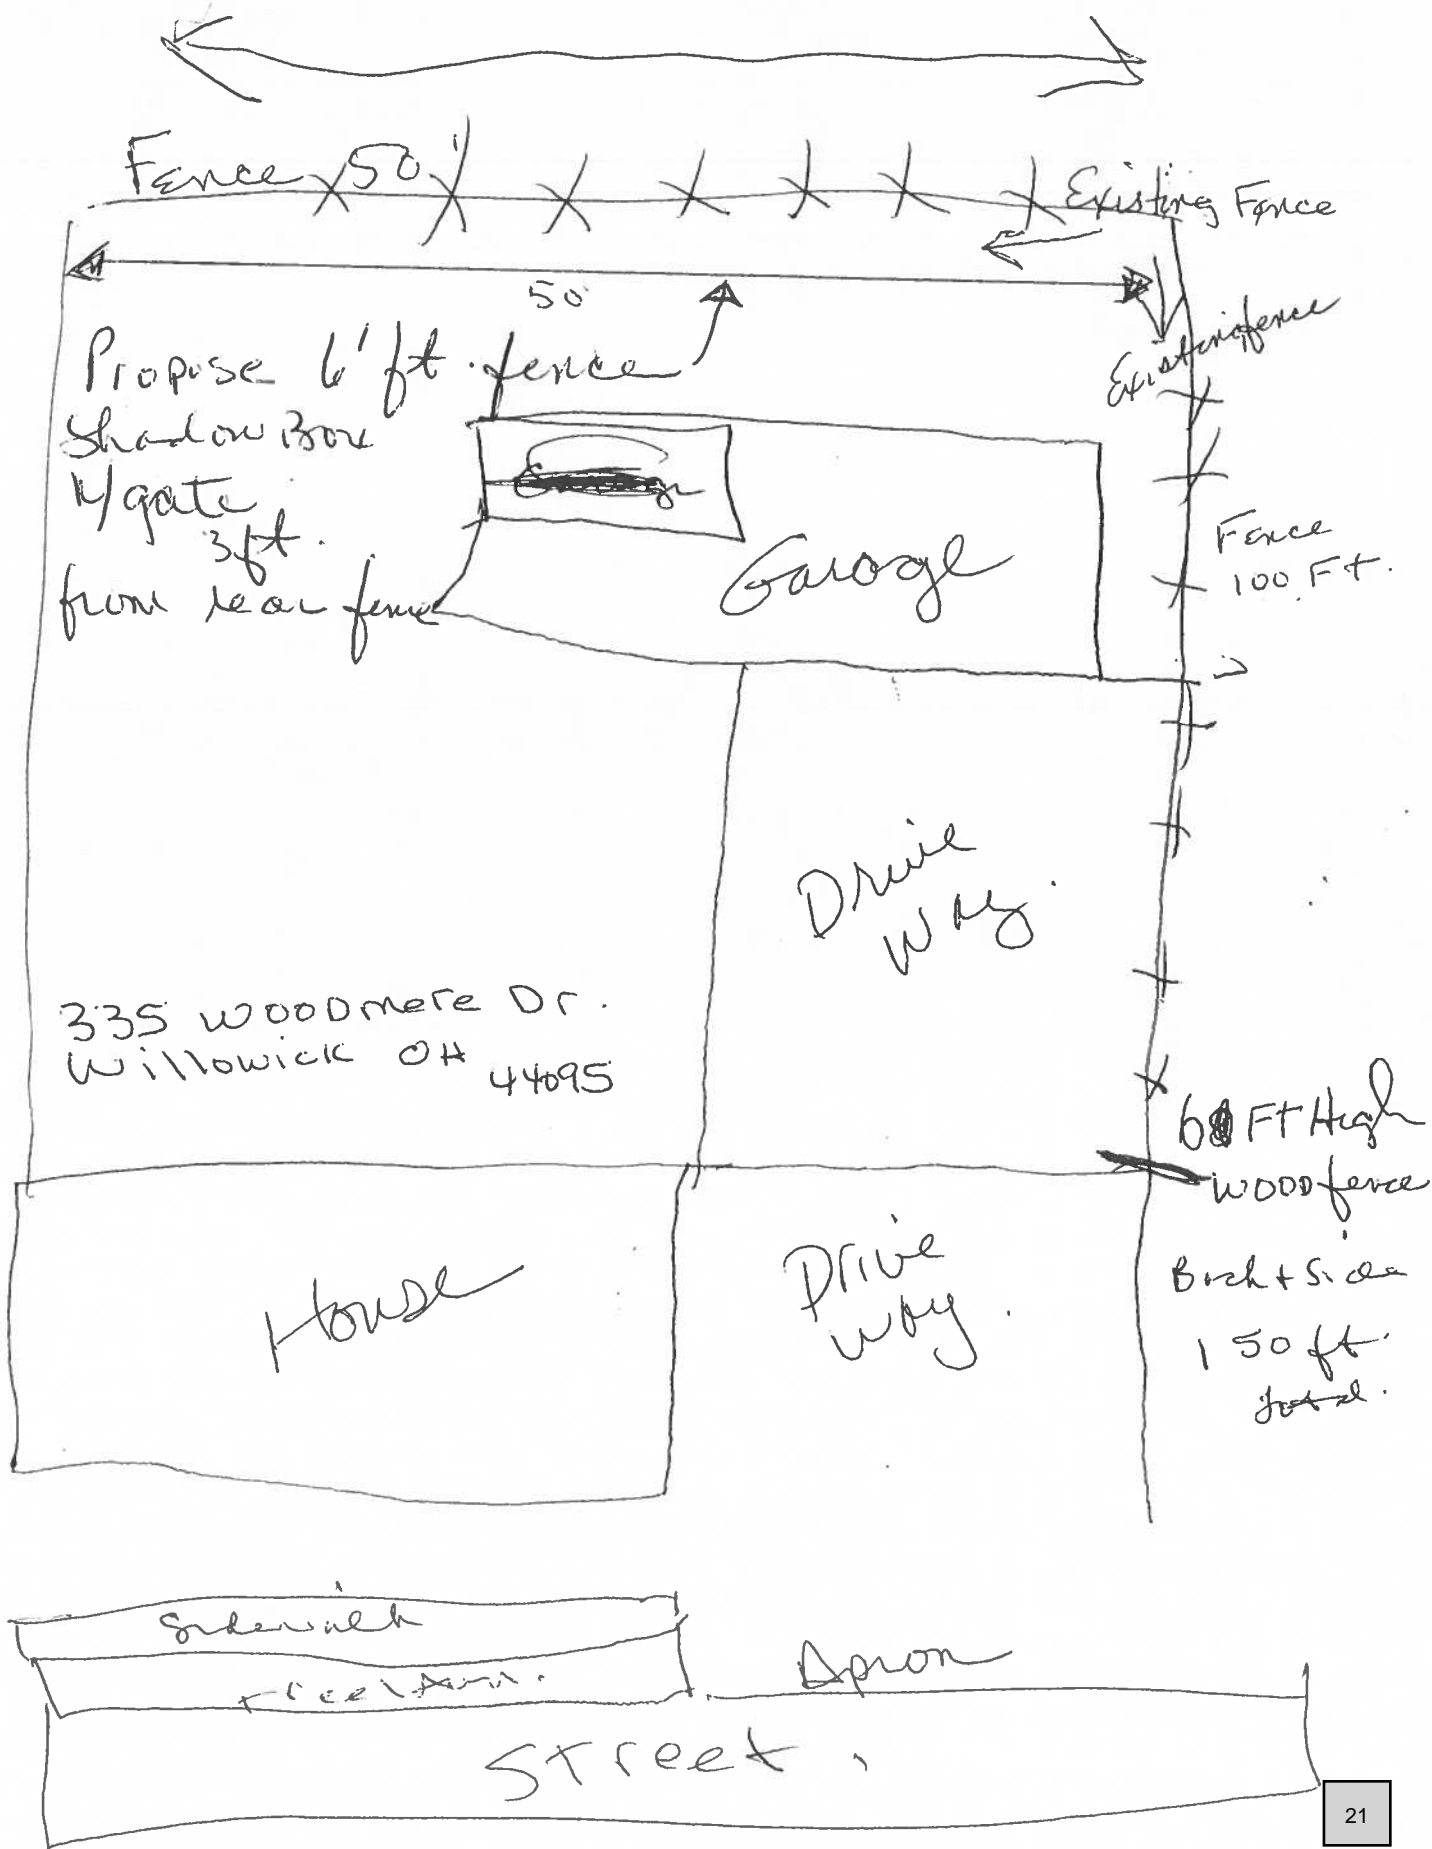 Fence 50'
Existing Fence
50
Existing fence
Propose 6' ft. fence
Shadow Box
W/gate
3ft.
from rear fence
Garage
Fence
100 Ft.
Drive
Way.
335 WOODmere Dr.
Willowick OH
44095
6 FT High
WOOD fence
Back + Side
150 ft.
total.
House
Drive
Way.
Sidewalk
Treelawn.
Apron
Street.
21